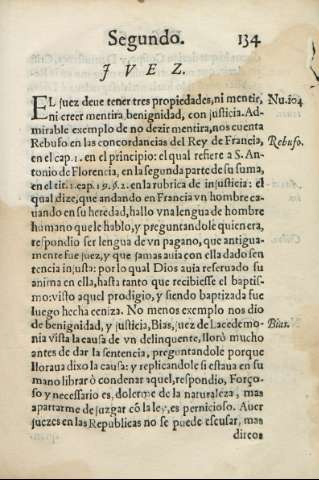 Segundo. 134
JVEZ.
EL juez deue tener tres propiedades, ni mentir, Nu.104
ni creer mentira, benignidad, con justicia. Ad-
mirable exemplo de no dezir mentira, nos cuenta
Rebufo en las concordancias del Rey de Francia, Rebufo.
en el cap. 1. en el principio: el qual refiere a S. An-
tonio de Florencia, en la segunda parte de su suma,
en el tit. 1. cap. 19. §. 2. en la rubrica de injusticia: el
qual dize, que andando en Francia vn hombre ca-
uando en su heredad, hallo vna lengua de hombre
humano que le hablo, y preguntandole quien era,
respondio ser lengua de vn pagano, que antigua-
mente fue juez, y que jamas auia con ella dado sen
tencia injusta: por lo qual Dios auia reseruado su
anima en ella, hasta tanto que recibiesse el baptis-
mo: visto aquel prodigio, y siendo baptizada fue
luego hecha ceniza. No menos exemplo nos dio
de benignidad, y justicia, Bias, juez de Lacedemo- Bias.
nia vista la causa de vn delinquente, llorò mucho
antes de dar la sentencia, preguntandole porque
lloraua dixo la causa: y replicandole si estaua en su
mano librar ò condenar aquel, respondio, Forço-
so y necessario es, dolerme de la naturaleza, mas
apartarme de juzgar cõ la ley, es pernicioso. Auer
juezes en las Republicas no se puede escusar, mas
direos